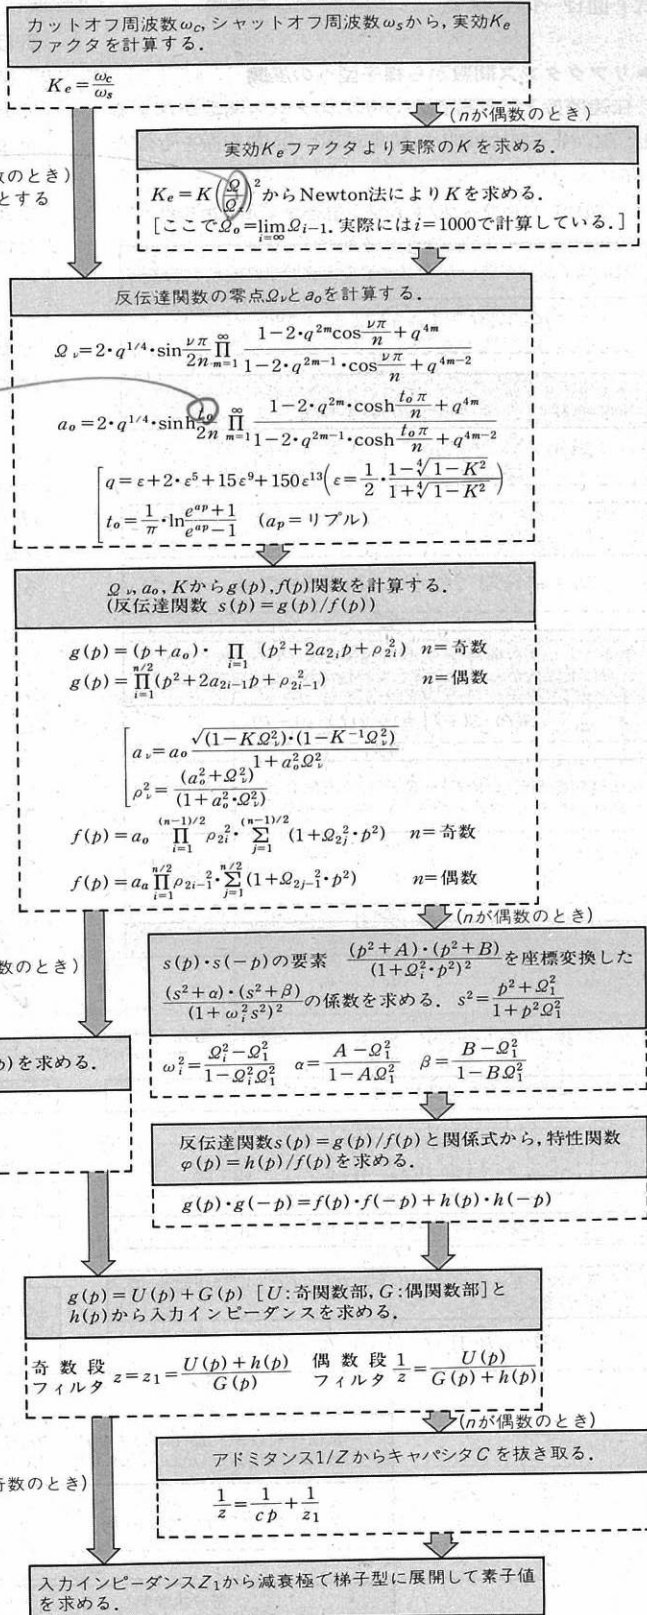 カットオフ周波数ω_c, シャットオフ周波数ω_sから, 実効K_e
ファクタを計算する.
K_e = ω_c/ω_s
(nが偶数のとき)
数のとき)
とする
実効K_eファクタより実際のKを求める.
K_e = K(Ω/Ω)^2からNewton法によりKを求める.
[ここでΩ_o = lim_{i=∞} Ω_{i-1}. 実際にはi=1000で計算している.]
反伝達関数の零点Ω_νとa_oを計算する.
Ω_ν = 2・q^{1/4}・sin νπ/2n ∏_{m=1}^{∞} (1-2・q^{2m}cos νπ/n + q^{4m})/(1-2・q^{2m-1}・cos νπ/n + q^{4m-2})
a_o = 2・q^{1/4}・sinh t_o/2n ∏_{m=1}^{∞} (1-2・q^{2m}・cosh t_oπ/n + q^{4m})/(1-2・q^{2m-1}・cosh t_oπ/n + q^{4m-2})
[q = ε+2・ε^5+15ε^9+150ε^{13}(ε = 1/2・(1-∜(1-K^2))/(1+∜(1-K^2)))
t_o = 1/π・ln (e^{ap}+1)/(e^{ap}-1) (a_p=リプル)
Ω_ν, a_o, Kからg(p), f(p)関数を計算する.
(反伝達関数 s(p)=g(p)/f(p))
g(p) = (p+a_o)・∏_{i=1} (p^2+2a_{2i}p+ρ_{2i}^2) n=奇数
g(p) = ∏_{i=1}^{n/2}(p^2+2a_{2i-1}p+ρ_{2i-1}^2) n=偶数
[a_ν = a_o √((1-KΩ_ν^2)・(1-K^{-1}Ω_ν^2))/(1+a_o^2Ω_ν^2)
ρ_ν^2 = (a_o^2+Ω_ν^2)/(1+a_o^2・Ω_ν^2)
f(p) = a_o ∏_{i=1}^{(n-1)/2} ρ_{2i}^2・∑_{j=1}^{(n-1)/2} (1+Ω_{2j}^2・p^2) n=奇数
f(p) = a_a ∏_{i=1}^{n/2} ρ_{2i-1}^2・∑_{j=1}^{n/2} (1+Ω_{2j-1}^2・p^2) n=偶数
(nが偶数のとき)
数のとき)
s(p)・s(-p)の要素 (p^2+A)・(p^2+B)/(1+Ω_i^2・p^2)^2 を座標変換した
(s^2+α)・(s^2+β)/(1+ω_i^2s^2)^2 の係数を求める. s^2 = (p^2+Ω_1^2)/(1+p^2Ω_1^2)
ω_i^2 = (Ω_i^2-Ω_1^2)/(1-Ω_i^2Ω_1^2) α = (A-Ω_1^2)/(1-AΩ_1^2) β = (B-Ω_1^2)/(1-BΩ_1^2)
)を求める.
反伝達関数s(p)=g(p)/f(p)と関係式から, 特性関数
φ(p)=h(p)/f(p)を求める.
g(p)・g(-p)=f(p)・f(-p)+h(p)・h(-p)
g(p)=U(p)+G(p) [U:奇関数部, G:偶関数部]と
h(p)から入力インピーダンスを求める.
奇数段フィルタ z=z_1=(U(p)+h(p))/G(p) 偶数段フィルタ 1/z=U(p)/(G(p)+h(p))
(nが偶数のとき)
アドミタンス1/ZからキャパシタCを抜き取る.
奇数のとき)
1/z = 1/cp + 1/z_1
入力インピーダンスZ_1から減衰極で梯子型に展開して素子値
を求める.